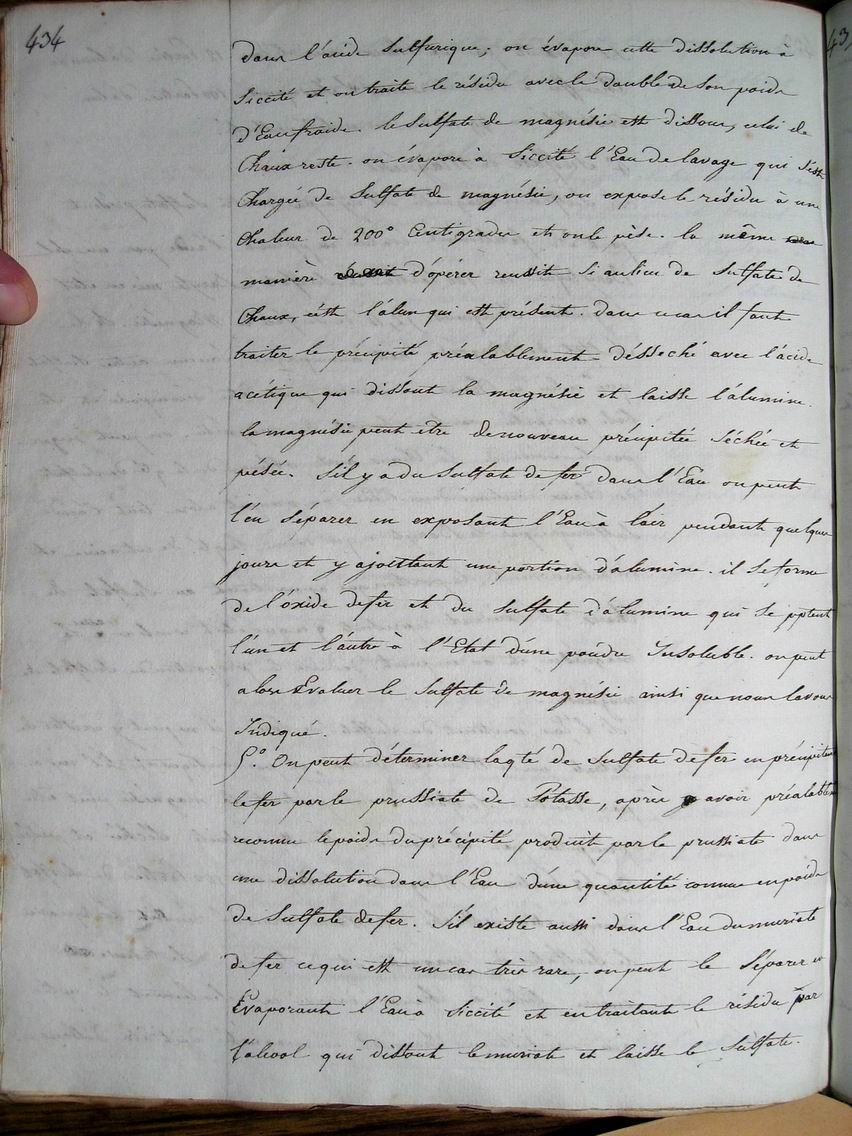 434
dans l'acide sulfurique; on évapore cette dissolution à
Siccité et on traite le résidu avec le double de son poids
d'Eau froide. le Sulfate de magnésie est dissous, celui de
Chaux reste. on évapore à Siccité l'Eau de lavage qui s'est
Chargée de Sulfate de magnésie, on expose le résidu à une
Chaleur de 200° Centigrades et on le pèse. la même
manière d'opérer reussit si au lieu de Sulfate de
Chaux, c'est l'alun qui est présent. dans ce cas il faut
traiter le précipité préalablement désséché avec l'acide
acétique qui dissout la magnésie et laisse l'alumine.
la magnésie peut etre de nouveau précipitée séchée et
pésée. S'il y a du Sulfate de fer dans l'Eau on peut
l'en séparer en exposant l'Eau à l'air pendant quelques
jours et y ajouttant une portion d'alumine. il se forme
de l'oxide de fer et du Sulfate d'alumine qui se pptent
l'un et l'autre à l'Etat d'une poudre Insoluble. on peut
alors Evaluer le Sulfate de magnésie ainsi que nous l'avons
Indiqué.
5.° On peut déterminer la qté de Sulfate de fer en précipitant
le fer par le prussiate de Potasse, après avoir préalablem
reconnu le poids du précipité produit par le prussiate dans
une dissolution dans l'Eau d'une quantité connue en poids
de Sulfate de fer. S'il existe aussi dans l'Eau du muriate
de fer ce qui est un cas très rare, on peut le Séparer en
Evaporant l'Eau à Siccité et en traitant le résidu par
l'alcool qui dissout le muriate et laisse le Sulfate.